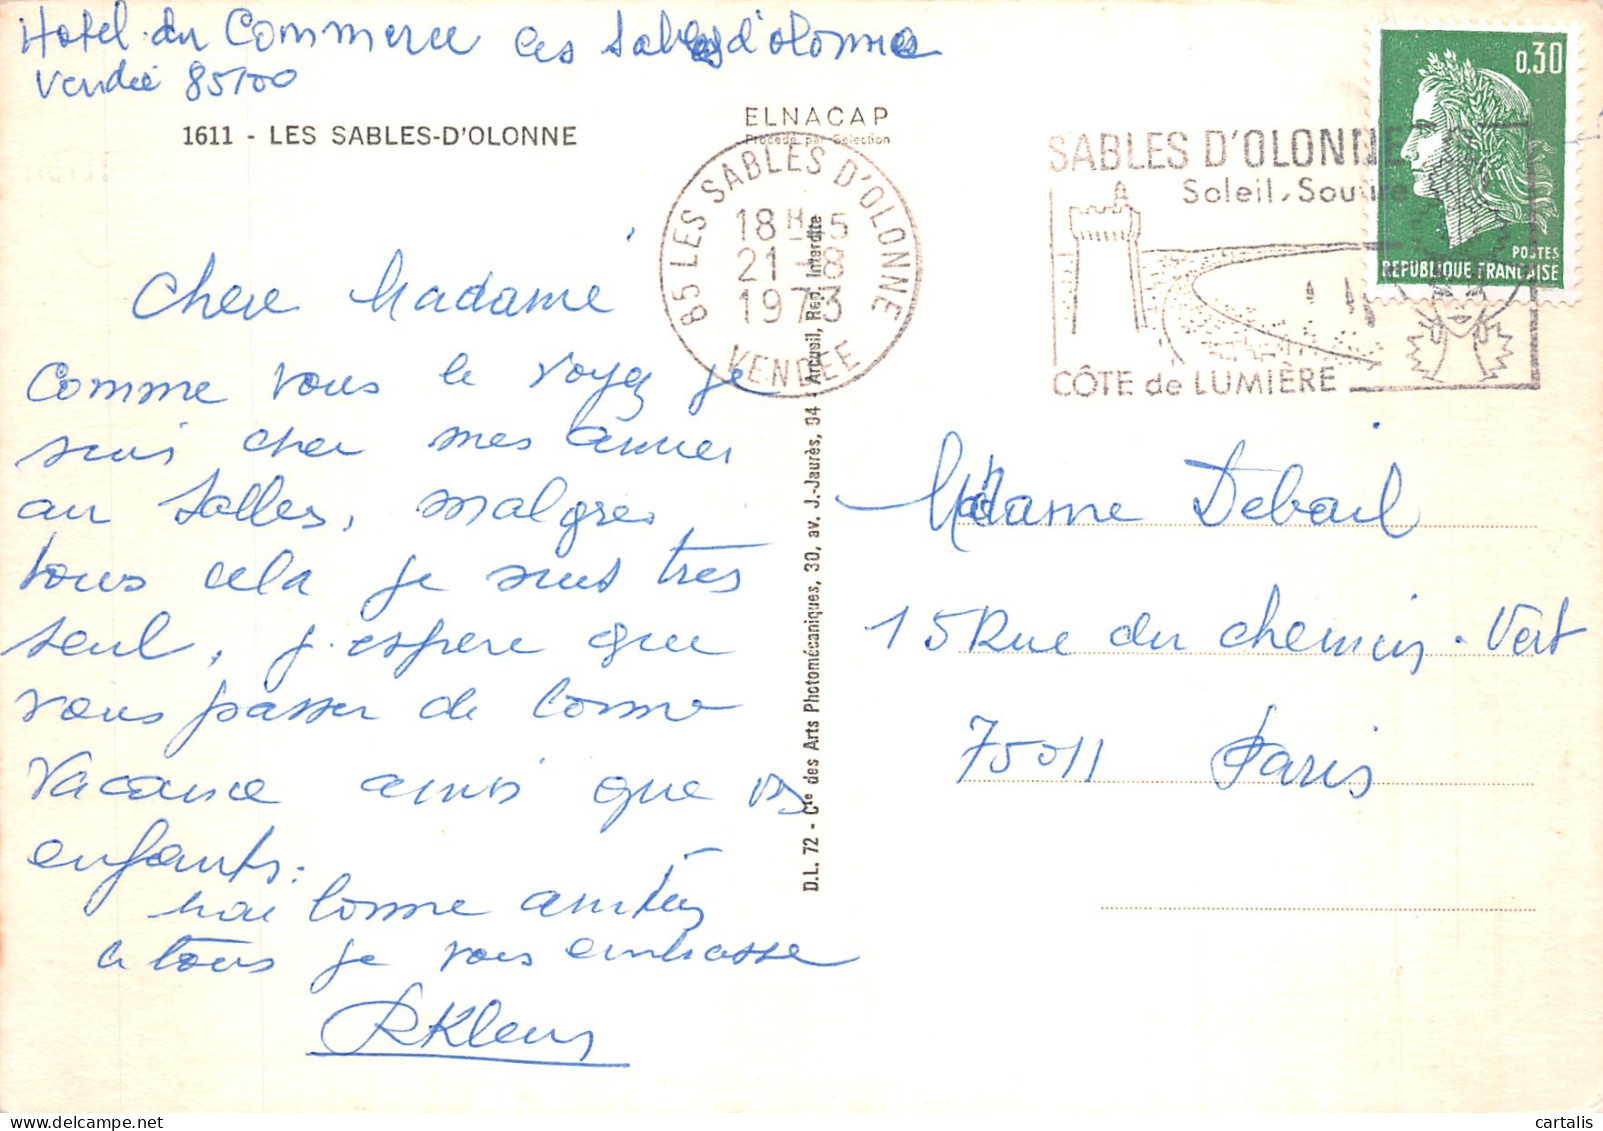 Hotel du Commerce les Sables d'olonne
Vendée 85100
1611 - LES SABLES-D'OLONNE
ELNACAP
Procédé par Sélection
85 LES SABLES D'OLONNE
18 H 15
21 - 8
1973
VENDEE
SABLES D'OLONNE
Soleil, Sourire
CÔTE de LUMIÈRE
0,30
POSTES
REPUBLIQUE FRANÇAISE
Chere Madame
Comme vous le voyez je
suis cher mes amies
au Salles, malgres
tous cela je suis tres
seul, j'espere que
vous passer de bonne
Vacance ainsi que vos
enfants.
bonne amitiés
a tous je vous embrasse
D.L. 72 - Cie des Arts Photomécaniques, 30, av. J.-Jaurès, 94 Arcueil, Rep. Interdite
Madame Debail
15 Rue du chemin-Vert
75011 Paris
cartalis
delcampe.net